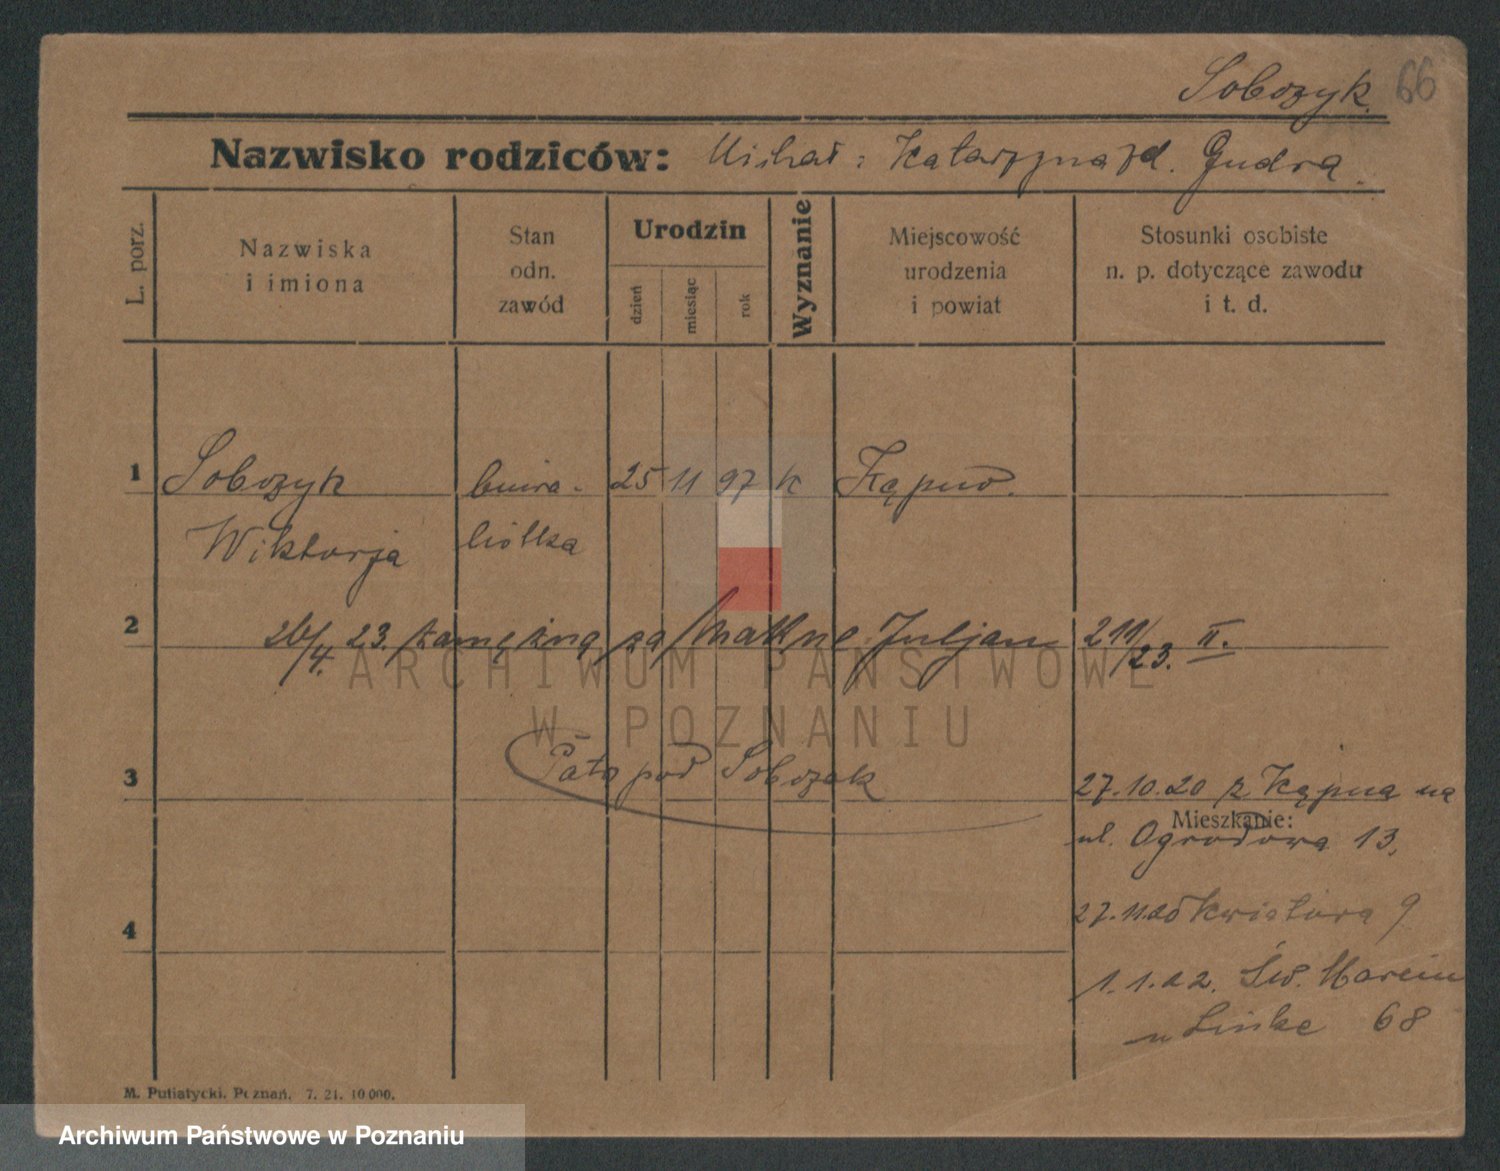 Sobczyk. 66
Nazwisko rodziców: Michał i Katarzyna zd. Gudra.
L. porz.
Nazwiska
i imiona
Stan
odn.
zawód
Urodzin
dzień
miesiąc
rok
Wyznanie
Miejscowość
urodzenia
i powiat
Stosunki osobiste
n. p. dotyczące zawodu
i t. d.
1 Sobczyk 25 11 97 k Kąpno.
Wiktorja
2 26/4. 23. zamężna za Juljan 211/23. II.
3 pod Sobczak
27.10.20 z Kąpna na
Mieszkanie:
ul. Ogrodowa 13.
4
27.11.20 Kwiatowa 9
1.1.22. Św. Marcin
u Linke 68
M. Putiatycki. Poznań. 7. 21. 10 000.
ARCHIWUM PAŃSTWOWE
W POZNANIU
Archiwum Państwowe w Poznaniu